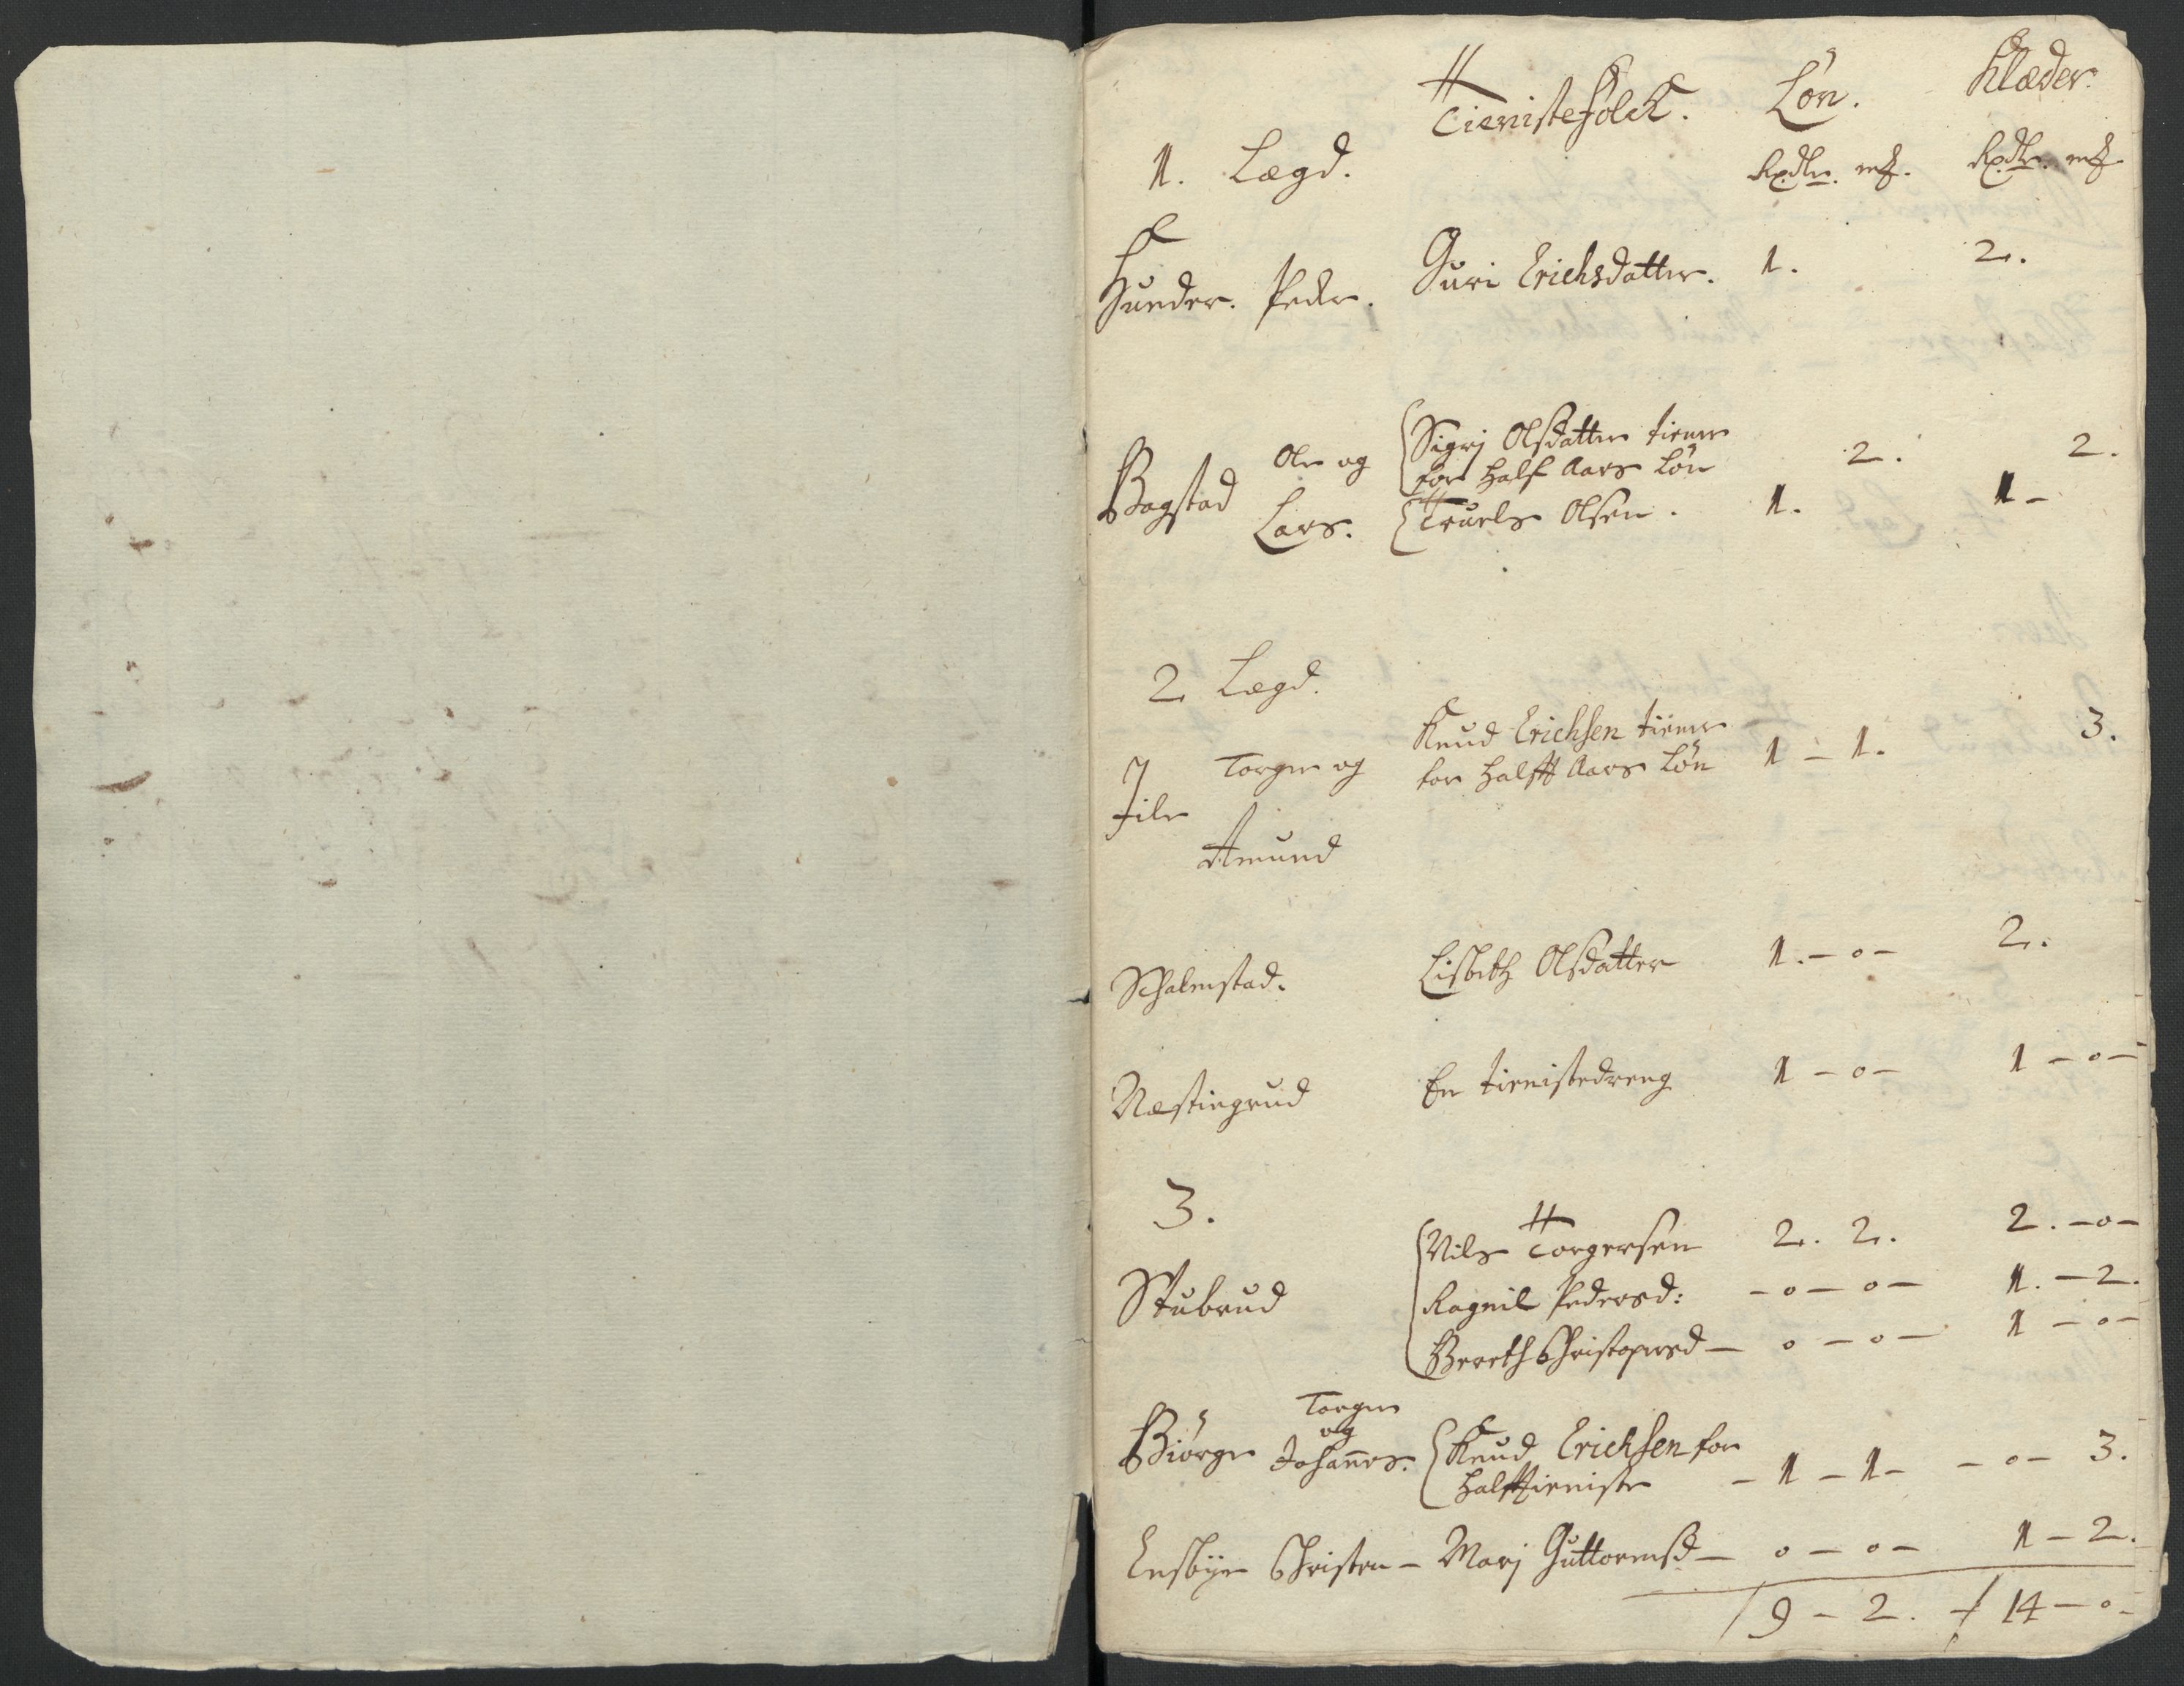 Tienistefolck. Lön. Klæder.
1. Lægd. Rxdlr. mk. Rxdlr. mk.
Hunder. Peder. Guri Erichsdatter. 1. 2.
Bogstad Ole og Lars. Sigrj Olsdatter tiener
for half Aars Lön 2. 2.
Truels Olsen. 1. 1 -
2 Lægd.
Jile Torger og Amund Knud Erichsen tiener
for halff Aars Lön 1 - 1. 3.
Schalmstad. Lisbeth Olsdatter 1. - 0 - 2.
Næstingrud En tienistedreng 1 - 0 - 1 - 0 -
3.
Stubrud Nils Torgersen 2. 2. 2. - 0 -
Ragnil Pedersd: - 0 - 0 - 1. - 2.
Bereth Christopersd - 0 - 0 - 1 - 0 -
Biörge Torger og Johannes. Knud Erichsen for
halff tieniste - 1 - 1 - - 0 - 3.
Ensbye Christen - Marj Guttormsd - 0 - 0 - 1 - 2.
/ 9 - 2. / 14 - 0 -